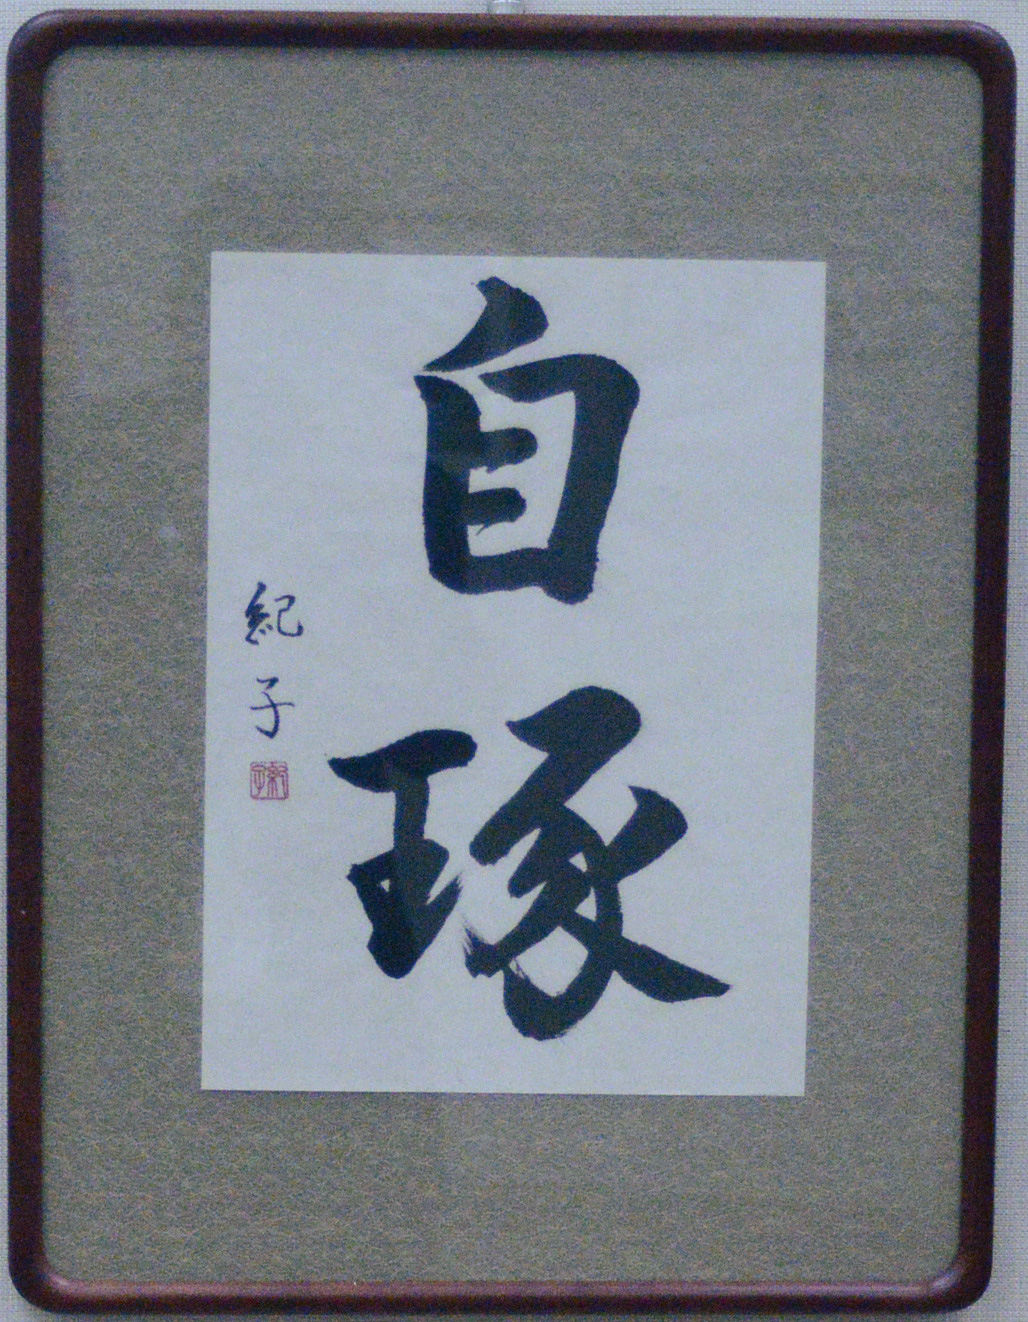 自琢
紀子